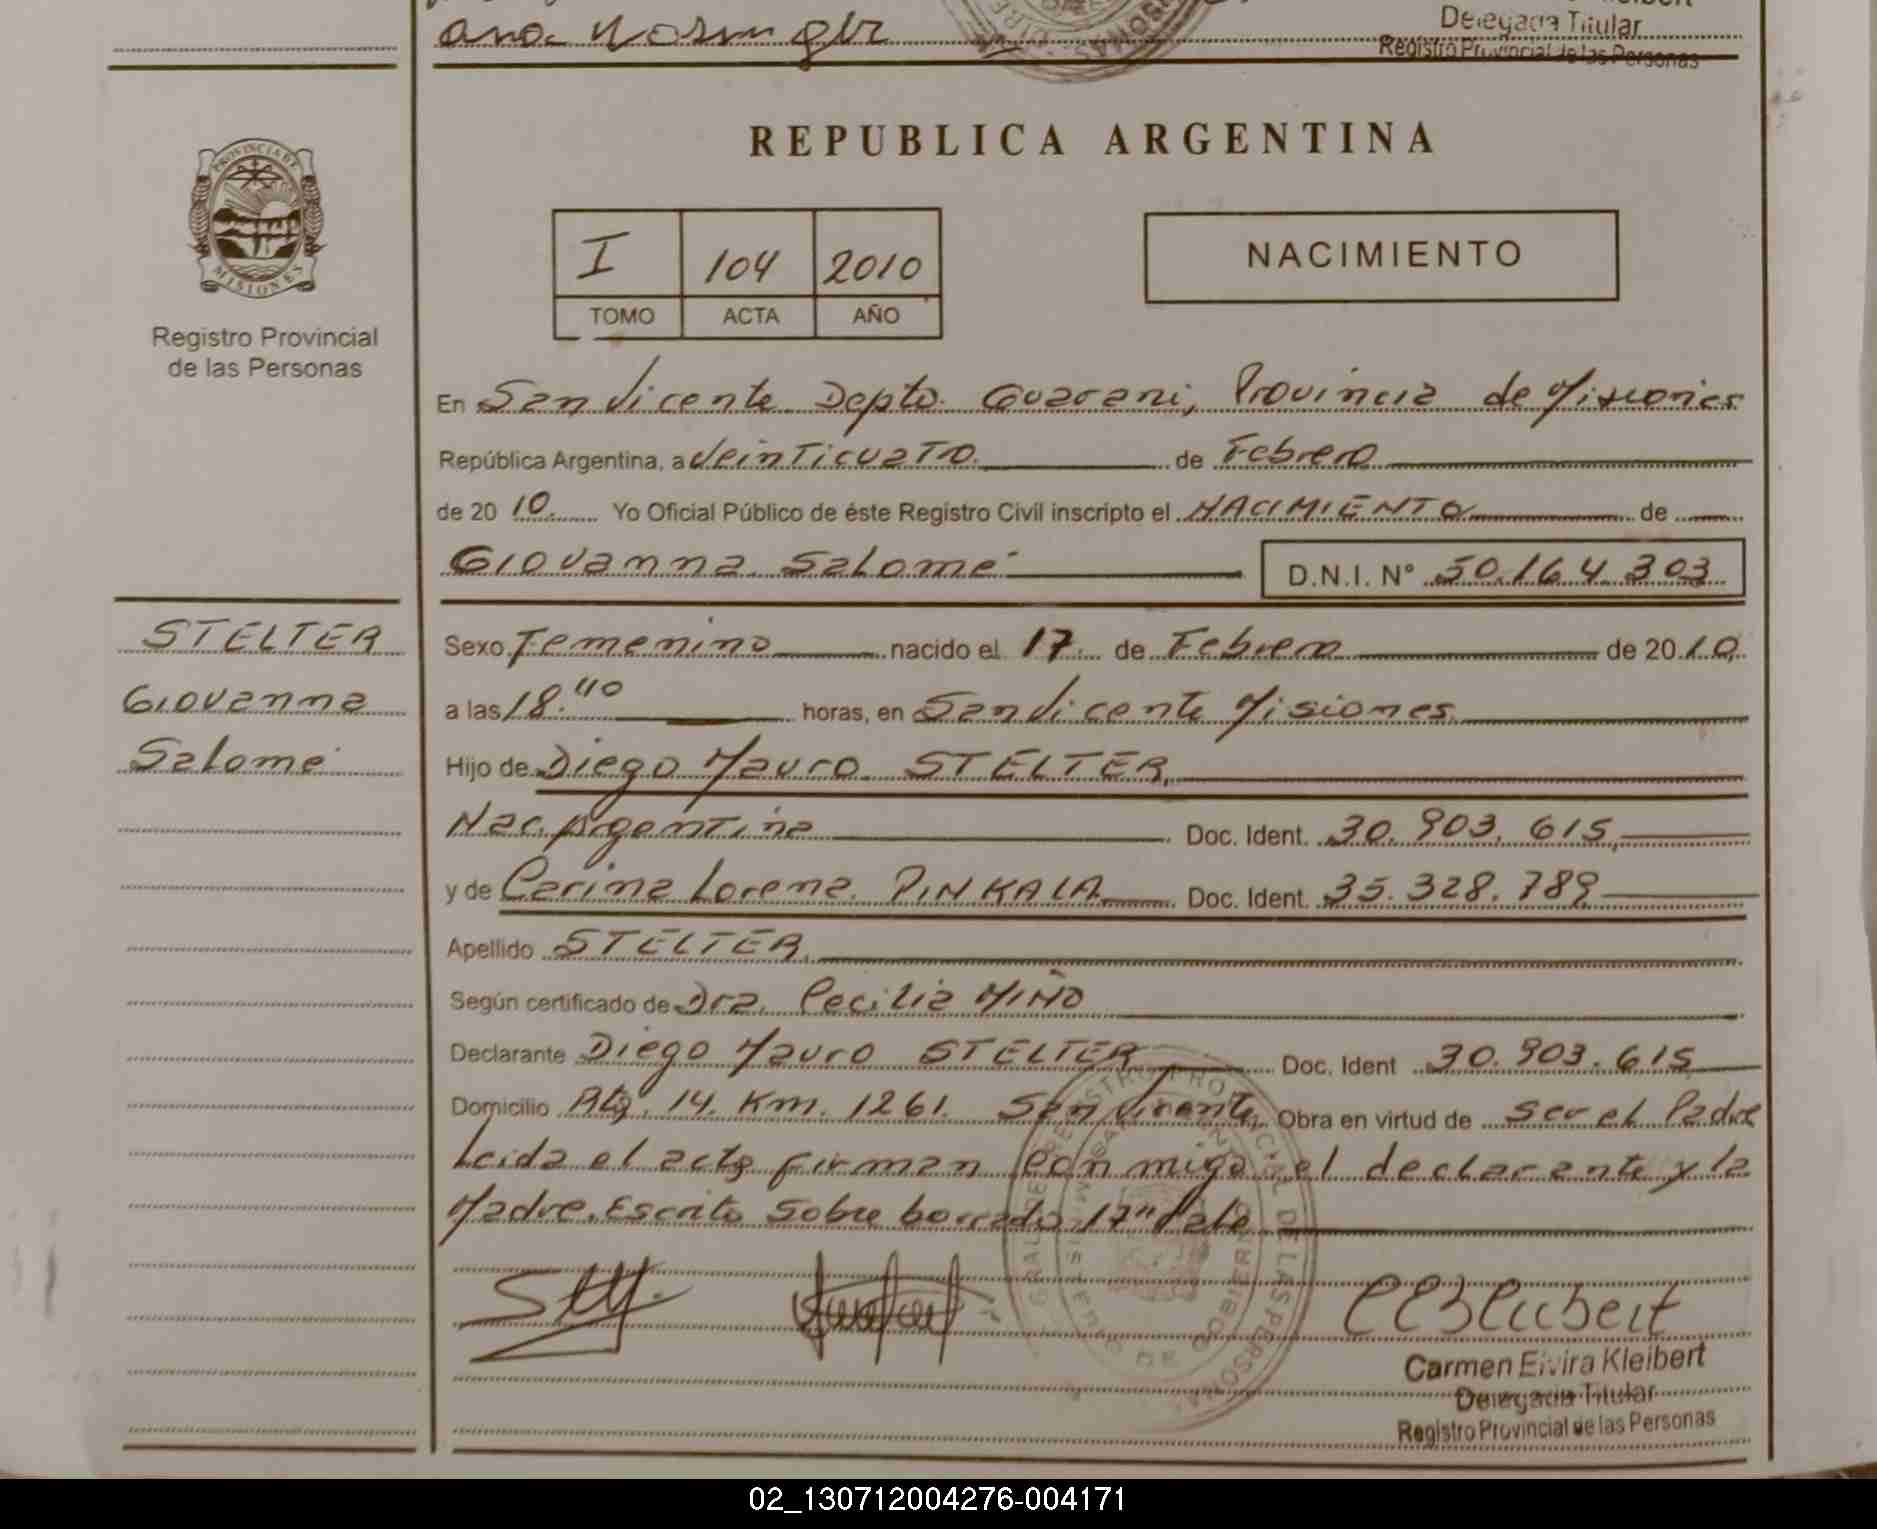 Delegada Titular
Registro Provincial de las Personas
REPUBLICA ARGENTINA
PROVINCIA DE
MISIONES
Registro Provincial
de las Personas
I 104 2010
TOMO ACTA AÑO
NACIMIENTO
En San Vicente Depto. Guarani, Provincia de Misiones
República Argentina, a Veinticuatro de Febrero
de 20 10. Yo Oficial Público de éste Registro Civil inscripto el NACIMIENTO de
Giovanna Salomé D.N.I. N° 50.164.303
STELTER
Giovanna
Salomé
Sexo Femenino nacido el 17 de Febrero de 20 10
a las 18:40 horas, en San Vicente Misiones
Hijo de Diego Mauro STELTER,
Nac. Argentina Doc. Ident. 30.903.615,
y de Carina Lorena PINKALA Doc. Ident. 35.328.789
Apellido STELTER
Según certificado de Dra. Cecilia MIÑO
Declarante Diego Mauro STELTER Doc. Ident 30.903.615
Domicilio Rta. 14. Km. 1261. San Vicente, Obra en virtud de ser el Padre
Leida el acta firman con migo el declarante y la
Madre. Escrito sobre borrado 17" Vale
Carmen Elvira Kleibert
Delegada Titular
Registro Provincial de las Personas
02_130712004276-004171